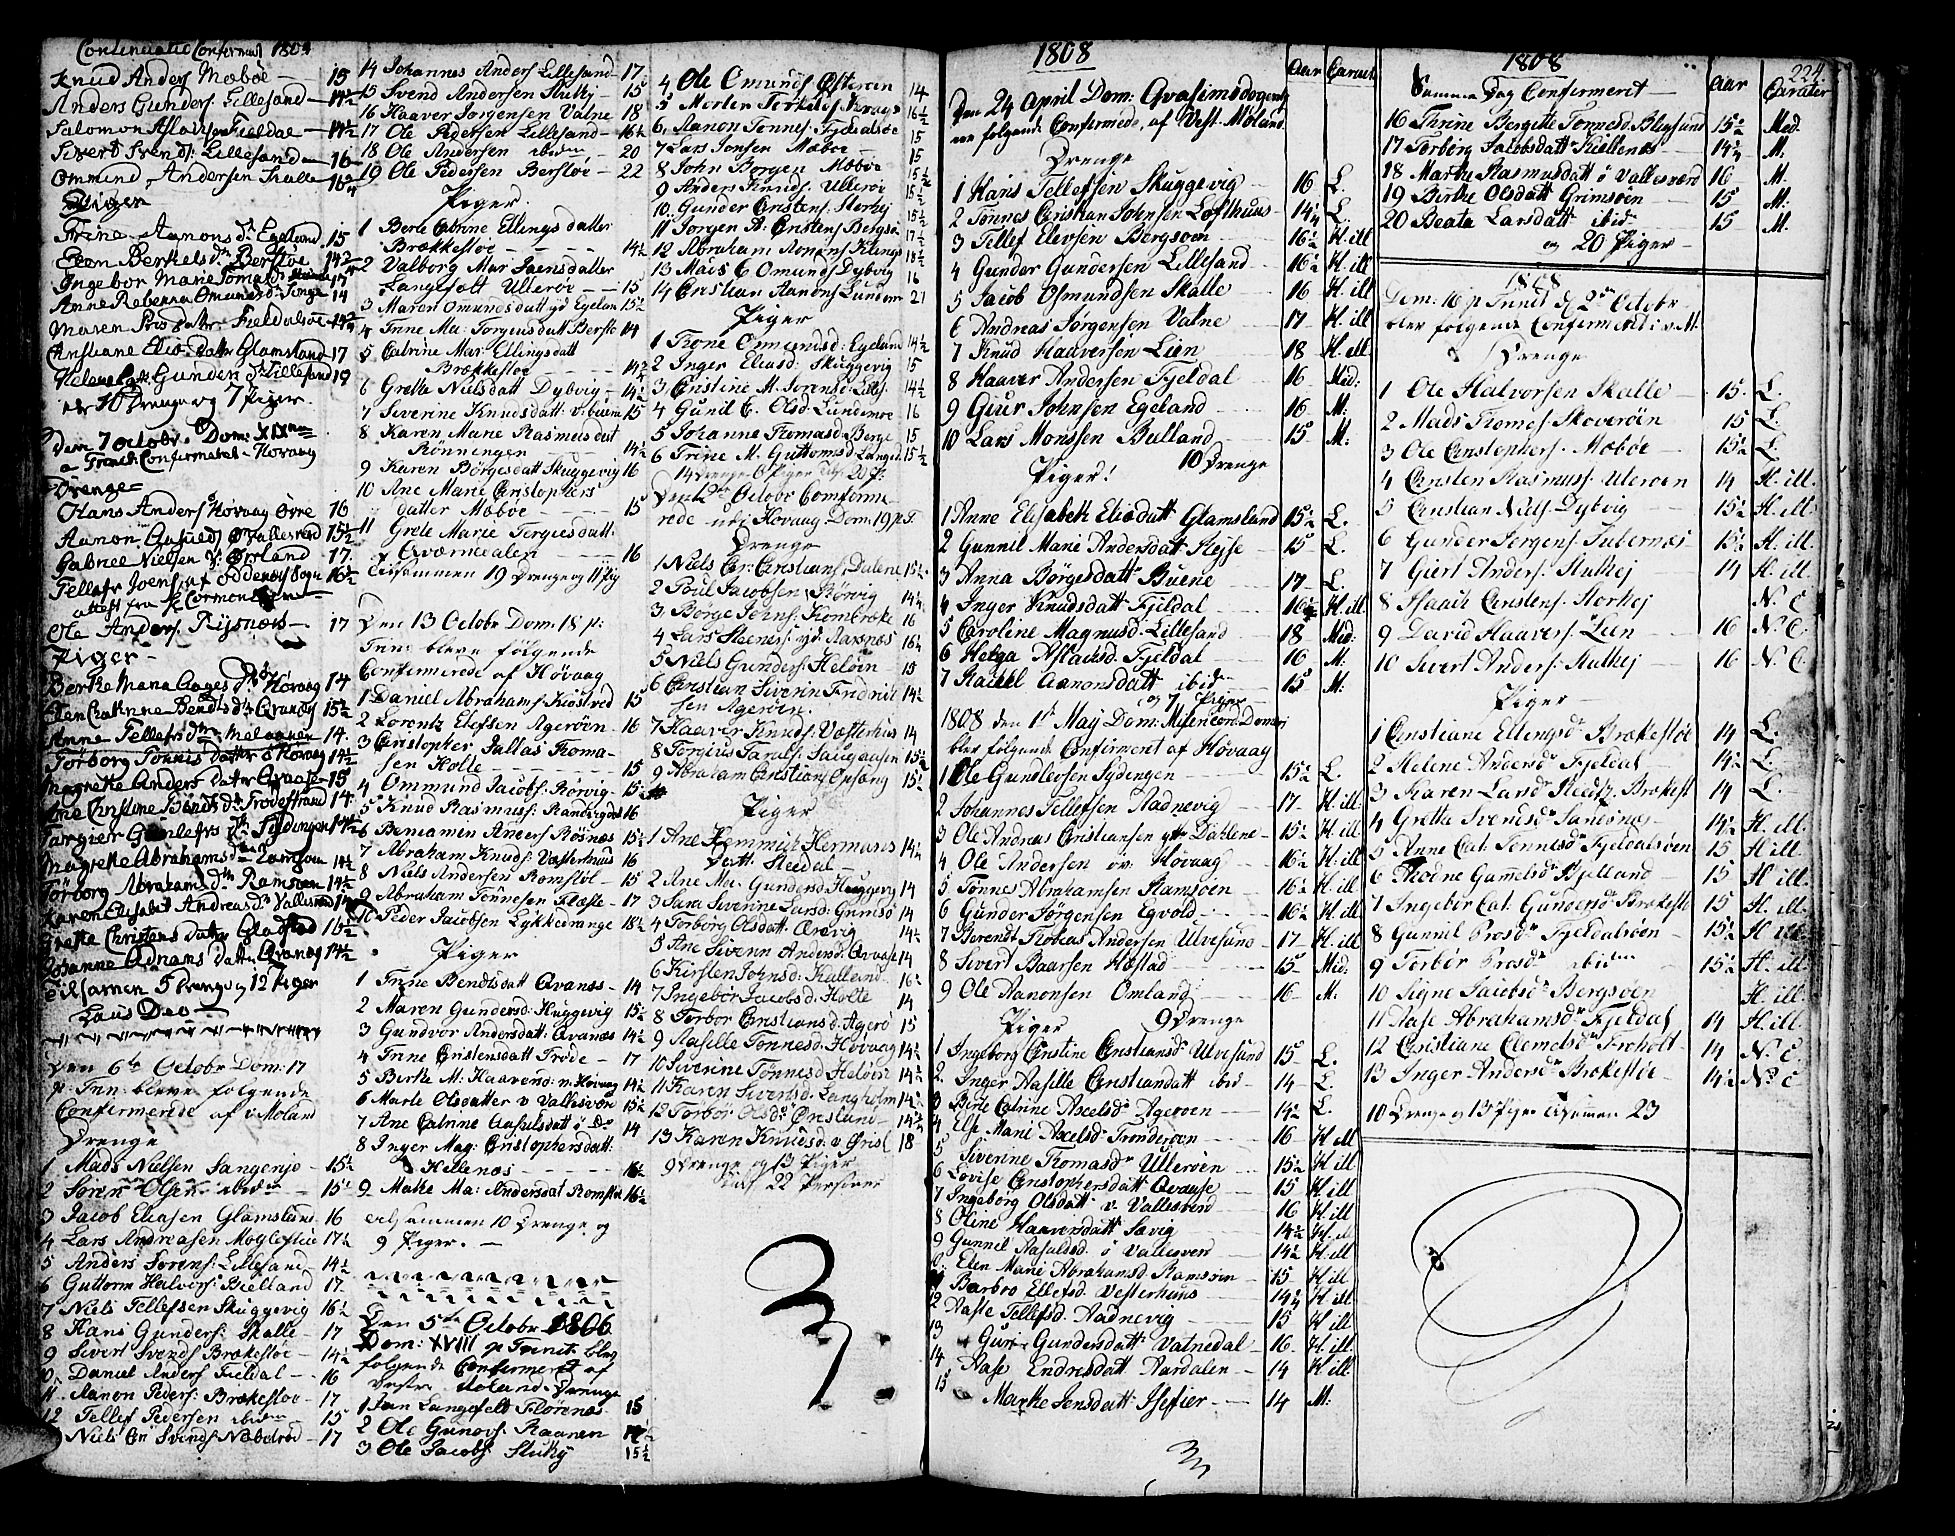 Continuatio Confermat 180
Knud Anders Mæbøe - 15
Anders Gunders: Lillesand - 14½
Salomon Aslaks: Fieldal - 14½
Sivert Svends: Lillesand - 16
Ommund Andersen Skalle - 16¾
Piger
Trine Aanons D: Egeland 15
Elen Berthels D: Berstøe 14½
Ingebor Marie Tomas D:
Anne Rebecca Omunds D: 14
Maren Fieldalsøe 14½
Cristiane Elias Datter Glamsland 17
Helene Gunders D: Lillesand 19
er 10 Drenge og 7 Piger
Den 7 Octobr. Dom: XIX
a Trinit: Confirmeret - Høvaag
Drenge
Hans Anders Høvaag Øvre 16
Aanon Øvallesverd 15½
Gabriel Nielsen Ørland 17
Tellefs Joens: af Oddernes Sogn 16½
attest fra
Ole Anders. Rijsnæs - 17
Piger -
Berte Maria Aages D: Høvaag 14
Elen Cathrine Bendts D: Qvanes 15½
Anne Tellefs D: 14.
Tørborg Tønnis datter Høvaag 14½
Magrette Anders datter Qvaase - 15
Ane Christine Bendts D: Trødestrand 14
Torgier Gunlefs D: Tijdingen 14½
Magrette Abrahams D: Ramsøen 14½
Tørborg Abrahams D: Ramsøen 14½
Karen Elisabet Andreas D: Vallesverd 14
Grette Christens datter Gladstad 15½
Johanne Adnams datter Qvanes 14½
Tilsamen 5 Drenge og 12 Piger
Laus Deo
Den 6te October Dom: 17
p: Trin: bleve følgende
Confirmerede af v: Moland
Drenge
1 Mads Nielsen Sangerejd - 15½
2 Søren Olsen ibidm - 15½
3 Jacob Eliasen Glamsland 16
4 Lars Andreasen Møglestue 17½
5 Anders Sørens: Lillesand 14½
6 Guttorm Halvors: Bielland 17
7 Niels Tellefsen Skuggevig 16½
8 Hans Gunders: Skalle - 17
9 Sivert Svends Brækestøe - 14½
10. Daniel Anders Fieldal - 16
11. Aanon Peders: Brækestøe - 17
12 Tellef Pedersen ibidm - 15
Niels Cn Svends Næbdrod - 17
14 Johannes Anders Lillesand - 17
15 Svend Andersen Stuhej - 15
16 Haaver Jørgensen Valne 18
17 Ole Pedersen Lillesand - 16½
18 Ole Andersen ibidm - 20
19 Ole Pedersen Berstøe - 22
Piger
1 Berte Catrine Ellings datter
Brækkestøe - - - 14½
2 Valborg Mar Jaensdatter
Langefelt Ulerøe - - 15
3 Maren Omundsdatt yd Egelan 15½
4 Trine Ma: Torgiusdatt Berstø 14
5 Catrine Mar Ellingsdatt
Brækkestøe - - - 14½
6 Grethe Nielsdatt Dybvig - 14½
7 Siverine Knudsdatt v. buene 15
8 Karen Marie Rasmusdatt
Rønningen - - 14½
9 Karen Børgesdatt Skuggevig 16
10 Ane Marie Cristophers
datter Mæbøe - - - 15
11 Grete Marie Tergiusdatt:
Qværnedalen - - - 16
Tilsammen 19 Drenge og 11 Pig
Den 13 October Dom: 18 p:
Trin: bleve følgende
Confirmerede af Høvaag
1 Daniel Abrahams: Kiøstved 15
2 Lorentz Elefsen Agerøen - 16
3 Cristopher Jullas Toma-
sen Holte - - - 15
4 Ommund Jacobs: Rørvig - 15½
5 Knud Rasmuss: Randvigen 16
6 Beniamen Anders Røsnæs 15½
7 Abraham Knuds: Vesterhuus 16
8 Niels Andersen Romstøl - 15
9 Abraham Tønnesen Flæste - 17
10 Peder Jacobsen Lykkedrange 18½
Piger
1 Trine Bendtsdatt Qvanæs - 14
2 Maren Gundersd: Huggevig 15½
3 Gundvor Andersdatt: Qvanæs 14½
4 Trine Cristensdatt Trøde - 17
5 Berte M: Haaversd: n. Høvaag 14½
6 Marte Olsdatter v Vallesverd 15½
7 Ane Catrine Aasulsdatt ø Do 14
8 Inger Mag: Cristophersdatt:
Hellenæs - - - 16½
9 Malte Ma: Andersdat Romstøl 16½
tilsammen 10 Drenge og
9 Piger. -
Den 5te October 1806
Dom: XVIII p Trinit: blev
følgende Confirmeret af
Vestre Moland. Drenge
1 Jan Langefelt Florenæs - 15
2 Ole Gunovs: Kaaren 14½
3 Ole Jacobs: Stuhej 15½
4 Ole Omunds Østerøen 14
5 Morten Terkels: Kraage 16½
6 Aanon Tønnes: Fjeldalsøe 15
7 Lars Jonsen Mæbøe - 15
8 John Børgen Mæbøe 15½
9 Anders Knuds: Ullerøe 15½
10. Gunder Cristens: Storhej 15½
11 Jørgen B: Cristens Bergsøe 17½
12 Abraham Aonens Kiling 18½
13 Mads C Omunds Dybvig 16
14 Cristian Aanons Lundem 21
Piger
1 Trone Ommundsd: Egeland 14½
2 Inger Eliasd: Skuggevig 15
3 Cristine M. Sørensd Lilles. 14½
4 Gunil C. Olsd: Lundemoe 16
5 Johanne Thomasd: Berge 15
6 Trine M. Guttormsd Langed 15½
14 Drenge 6 Piger 20 P:
Den Octobr Comfirme
rede udj Høvaag Dom: 19 p T.
Drenge
1 Niels Cr: Cristians: Dalene 15½
2 Poul Jacobsen Rørvig - 14¼
3 Børge Jerns: Kombroke 16
4 Lars Staenes: yd Aarsnæs 16¼
5 Niels Gunders: Heløen - 15
6 Cristian Siverin Fridrich 14½
sen Agerøen.
7 Haaver Knuds: Vesterhus 14
8 Torgius Taralls: Saugaasen 15½
9 Abraham Cristians Opsang 15½
Piger
1 Ane Hemmich Hermans 14¼
datt. Steedal -
2 Ane Ma. Gundersd: Huggevig 14
3 Sara Siverine Larsd: Grimsø 14
4 Torborg Olsdatt Qvevig - 14½
5 Ane Siverin Andersd: Qvaase 14
6 Kirsten Johnsd: Kalland - 16½
7 Ingebør Jacobsd: Holte 14
8 Torbor Cristiansd: Agerø 15
9 Aaselle Tønnesd: Høvaag 14½
10 Siverine Tønnesd Heløen 14½
11 Karen Sivertsd: Langholm 14½
12 Torbør Olsd: Ørslund - 14¾
13 Karen Knudsd v Øresl 18
9 Drenge og 13 Piger
22 Persåner
1808
Aar Caract.
Den 24 April Dom: Qvasimodogenit
ere følgende Confirmede, af Vest. Moland
Drenge
1 Hans Tellefsen Skuggevig - 16 L.
2 Tønnes Cristian Johnsen Løfthuus - 14¼ L.
3 Tellef Elevsen Bergsøen - 16½ H. ill
4 Gunder Gundersen Lillesand - 16½ H. ill
5 Jacob Osmundsen Skalle - 16 H. ill
6 Andreas Jørgensen Valne - 17 H. ill
7 Knud Haaversen Lien - 18 H. ill
8 Haaver Andersen Fjeldal 16 Med:
9 Giur Johnsen Egeland - 16 M:
10 Lars Monssen Bulland - 15 M:
Piger! 10 Drenge
1 Anne Elisabeth Eliædatt Glamsland 15½ L.
2 Gunnil Marie Andersdatt Stejse - 15 L.
3 Anna Børgesdatt Buene - 17 L.
4 Inger Knudsdatt Fjeldal - 16½ H. ill
5 Caroline Magnusd: Lillesand 18 Mid:
6 Helga Aslachsd: Fjeldal - 16 M:
7 Rachel Aanonsdatt ibidm - 15 M:
og 7 Piger
1808 den 1te May Dom: Misericord: Domini
blev følgende Confirmeret af Høvaag
1 Ole Gundlevsen Tydingen - 15½ L.
2 Johannes Tellefsen Aadnevig - 17 H. ill
3 Ole Andreas Cristiansen ytr Dahlene - 15½ H. ill
4 Ole Andersen øv. Høvaag - 16½ H. ill
5 Tønnes Abrahamsen Ramsøen - 16½ H. ill
6 Gunder Jørgensen Egvold - 16½ H. ill
7 Berendt Tobeas Andersen Ulvesund - 17 H. ill
8 Sivert Baarsen Hæstad - 15 Mid:
9 Ole Aanonsen Omland - 16 M:
Piger 9 Drenge
1 Ingeborg Cristine Cristiansdr Ulvesund 15 L.
2. Inger Aaselle Cristiandatt ibid - 14 L.
3 Berte Catrine Axelsdr Agerøen - 14½ L.
4 Else Marie Axelsdr Trønderøen - 16 H. ill
5 Siverine Thomasdr Ullerøen - 15½ H ill
6 Lovise Cristophersdatt Qvaase - 15 H ill
7 Ingebørg Olsdatt v Vallesverd - 16 H ill
8 Oline Haaversdatt Sævig - 14½ H. ill
9 Gunnil Aasulsd. ø Vallesver - 14½ H. ill
Elen Marie Abrahamsd Ramsøen - 15 H ill
Barbro Ellefsd. Vesterhuus - 14¼ H ill
12 Aaste Tellefsd. Aadnevig - 15 H ill
13 Guroe Gundersdatt Vatnedal - 16 H. ill
14 Aase Endresdatt Aardalen - 14 H ill
15 Marthe Jensdatt Isefier - 14 M:
1808
Aar Carater
224.
Samme Dag Confirmeret -
16 Thrine Bergitte Tønnesd Blegsund 15½ Med.
17 Torborg Jacobsdatt Kiellenæs - 14¼ M.
18 Marthe Rasmusdatt ø Vallesverd 16 M.
19 Birthe Olsdatt Grimsøen - 15 M:
20 Beata Larsdatt ibid - 15 M.
og 20 Piger -
1808
Dom: 16 p Trinit d 2den Octobr
blev følgende Confirmerd i v M.
Drenge
1 Ole Halvorsen Skalle - 15. L.
2 Mads Tomes Skoverøen 15 L.
3 Ole Cristophers. Mæbøe - 15½ L.
4 Cristen Rasmuss: Ulerøen 14 H. ill.
5 Cristian Niels. Dybvig - 15½ H. ill.
6 Gunder Jørgens: Tubernæs 15½ H. ill.
7 Giert Anders: Stuhej 14 H. ill.
8 Isaach Cristens: Storhej N. C
9 David Haavers: Lien - 16 N. C.
10 Sivert Anders: Stuhej 16 N. C.
Piger -
1 Cristiane Ellingsdr Brækestøe 14 L.
2 Helene Andersdr Fjeldal - 14½ L.
3 Karen Larsdr Brækest 14 L.
4 Grethe Svendsdr Sandsnes - 14½ H. ill.
5 Anne Cat. Tønnesdr Fjeldalsøen 15 H ill.
6 Thodne Gamelsdr Bjelland - 15 H ill.
7 Ingebør Cat. Gundersdr Brækestø 15 H. ill.
8 Gunnil Prosdr Fjeldalsøen - 15½ H ill.
9 Torbør Prosdr ibidm - 15½ H. ill.
10 Signe Jacobsdr Bergsøen H. ill.
11 Aase Abrahamsdr Fjeldal 14 H. ill.
12 Christiane Clemetsdr Froholt - 14 N. C
13 Inger Andersdr Brækestøe - 14½ N. C
10 Drenge og 13 Piger tilsamen 23